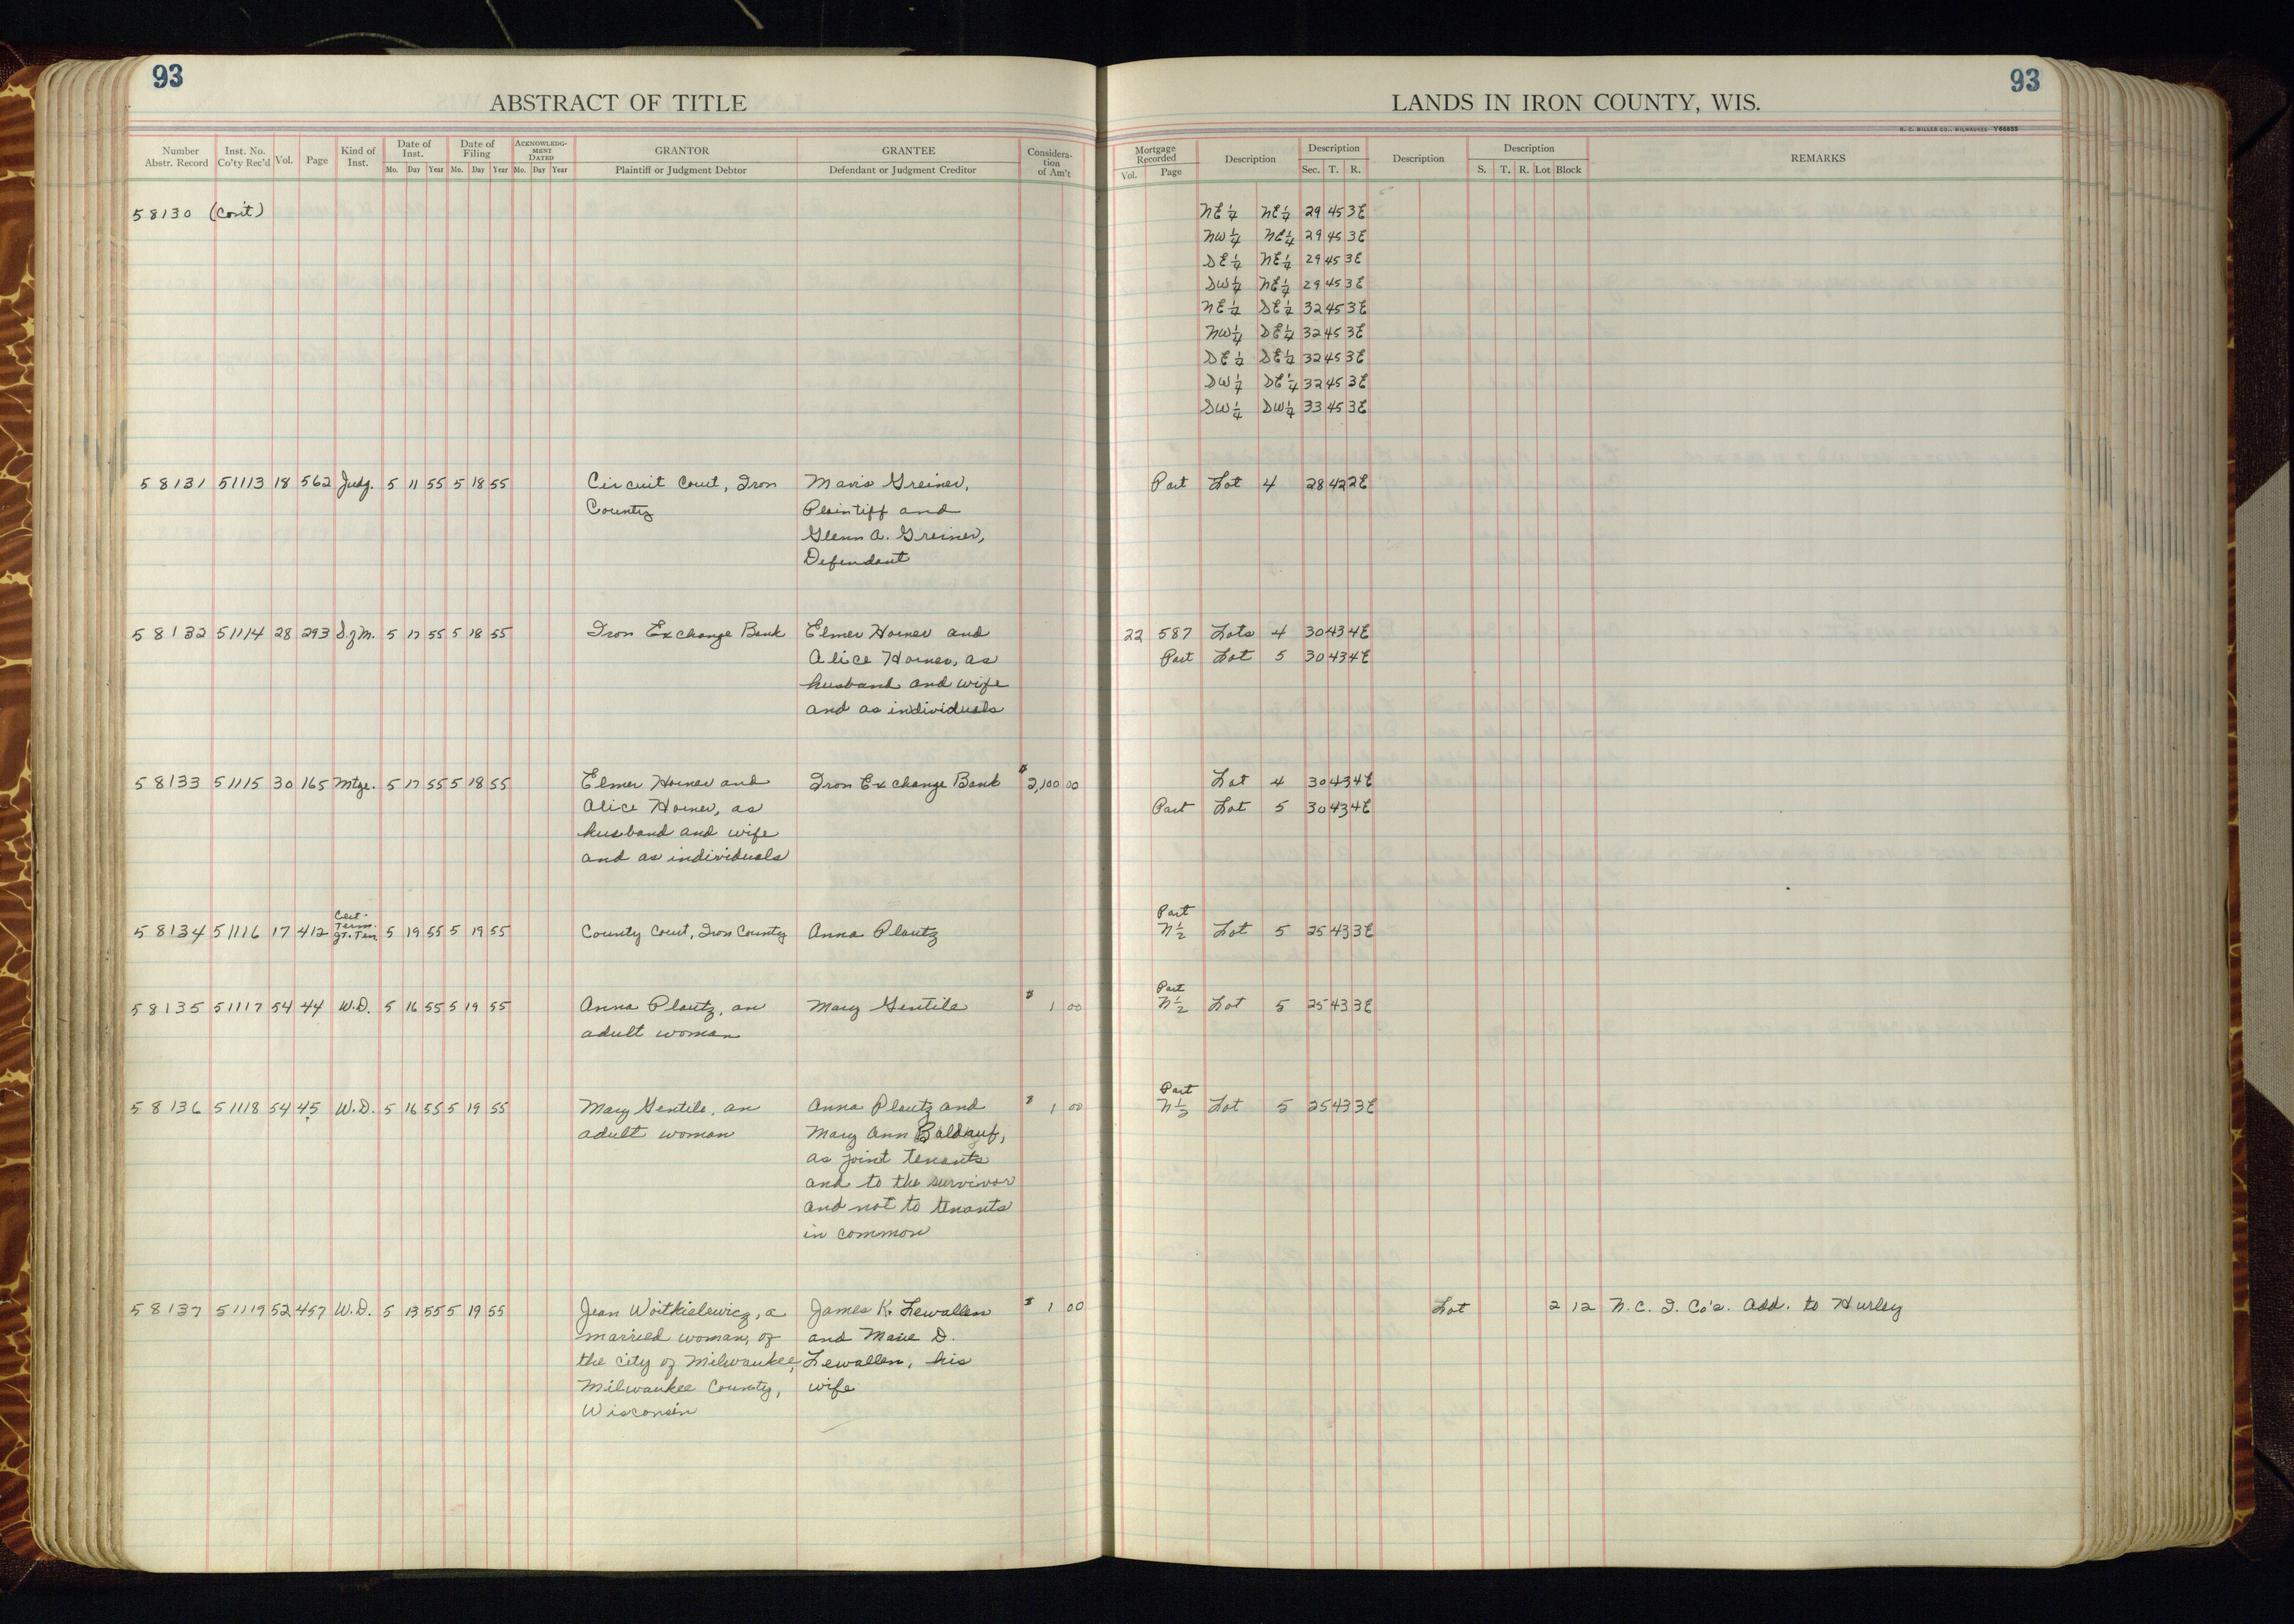 93
93
ABSTRACT OF TITLE
LANDS IN IRON COUNTY, WIS.
H. C. MILLER CO., MILWAUKEE Y66855
Number Abstr. Record Inst. No. Co'ty Rec'd Vol. Page Kind of Inst. Date of Inst. Mo. Day Year Date of Filing Mo. Day Year ACKNOWLEDGMENT DATED Mo. Day Year GRANTOR Plaintiff or Judgment Debtor GRANTEE Defendant or Judgment Creditor Consideration of Am't
Mortgage Recorded Vol. Page Description Description Sec. T. R. Description Description S. T. R. Lot Block REMARKS
58130 (Con't) NE 1/4 NE 1/4 29 45 3E
NW 1/4 NE 1/4 29 45 3E
SE 1/4 NE 1/4 29 45 3E
SW 1/4 NE 1/4 29 45 3E
NE 1/4 SE 1/4 32 45 3E
NW 1/4 SE 1/4 32 45 3E
SE 1/4 SE 1/4 32 45 3E
SW 1/4 SE 1/4 32 45 3E
SW 1/4 SW 1/4 33 45 3E
58131 51113 18 562 Judg. 5 11 55 5 18 55 Circuit Court, Iron Mavis Greiner, Part Lot 4 28 42 2E
County Plaintiff and
Glenn A. Greiner,
Defendant
58132 51114 28 293 S. of M. 5 17 55 5 18 55 Iron Exchange Bank Elmer Horner and 22 587 Lots 4 30 43 4E
Alice Horner, as Part Lot 5 30 43 4E
husband and wife
and as individuals
58133 51115 30 165 Mtge. 5 17 55 5 18 55 Elmer Horner and Iron Exchange Bank $2,100 00 Lot 4 30 43 4E
Alice Horner, as Part Lot 5 30 43 4E
husband and wife
and as individuals
Cert. Part
58134 51116 17 412 Term. Jt. Ten. 5 19 55 5 19 55 County Court, Iron County Anna Plautz N 1/2 Lot 5 25 43 3E
Part
58135 51117 54 44 W.D. 5 16 55 5 19 55 Anna Plautz, an Mary Gentile $ 1 00 N 1/2 Lot 5 25 43 3E
adult woman
Part
58136 51118 54 45 W.D. 5 16 55 5 19 55 Mary Gentile, an Anna Plautz and $ 1 00 N 1/2 Lot 5 25 43 3E
adult woman Mary Ann Baldauf,
as joint tenants
and to the survivor
and not to tenants
in common
58137 51119 52 457 W.D. 5 13 55 5 19 55 Jean Woitkielewicz, a James K. Lewallen $ 1 00 Lot 2 12 N. C. I. Co's. Add. to Hurley
married woman, of and Marie D.
the city of Milwaukee, Lewallen, his
Milwaukee County, wife
Wisconsin